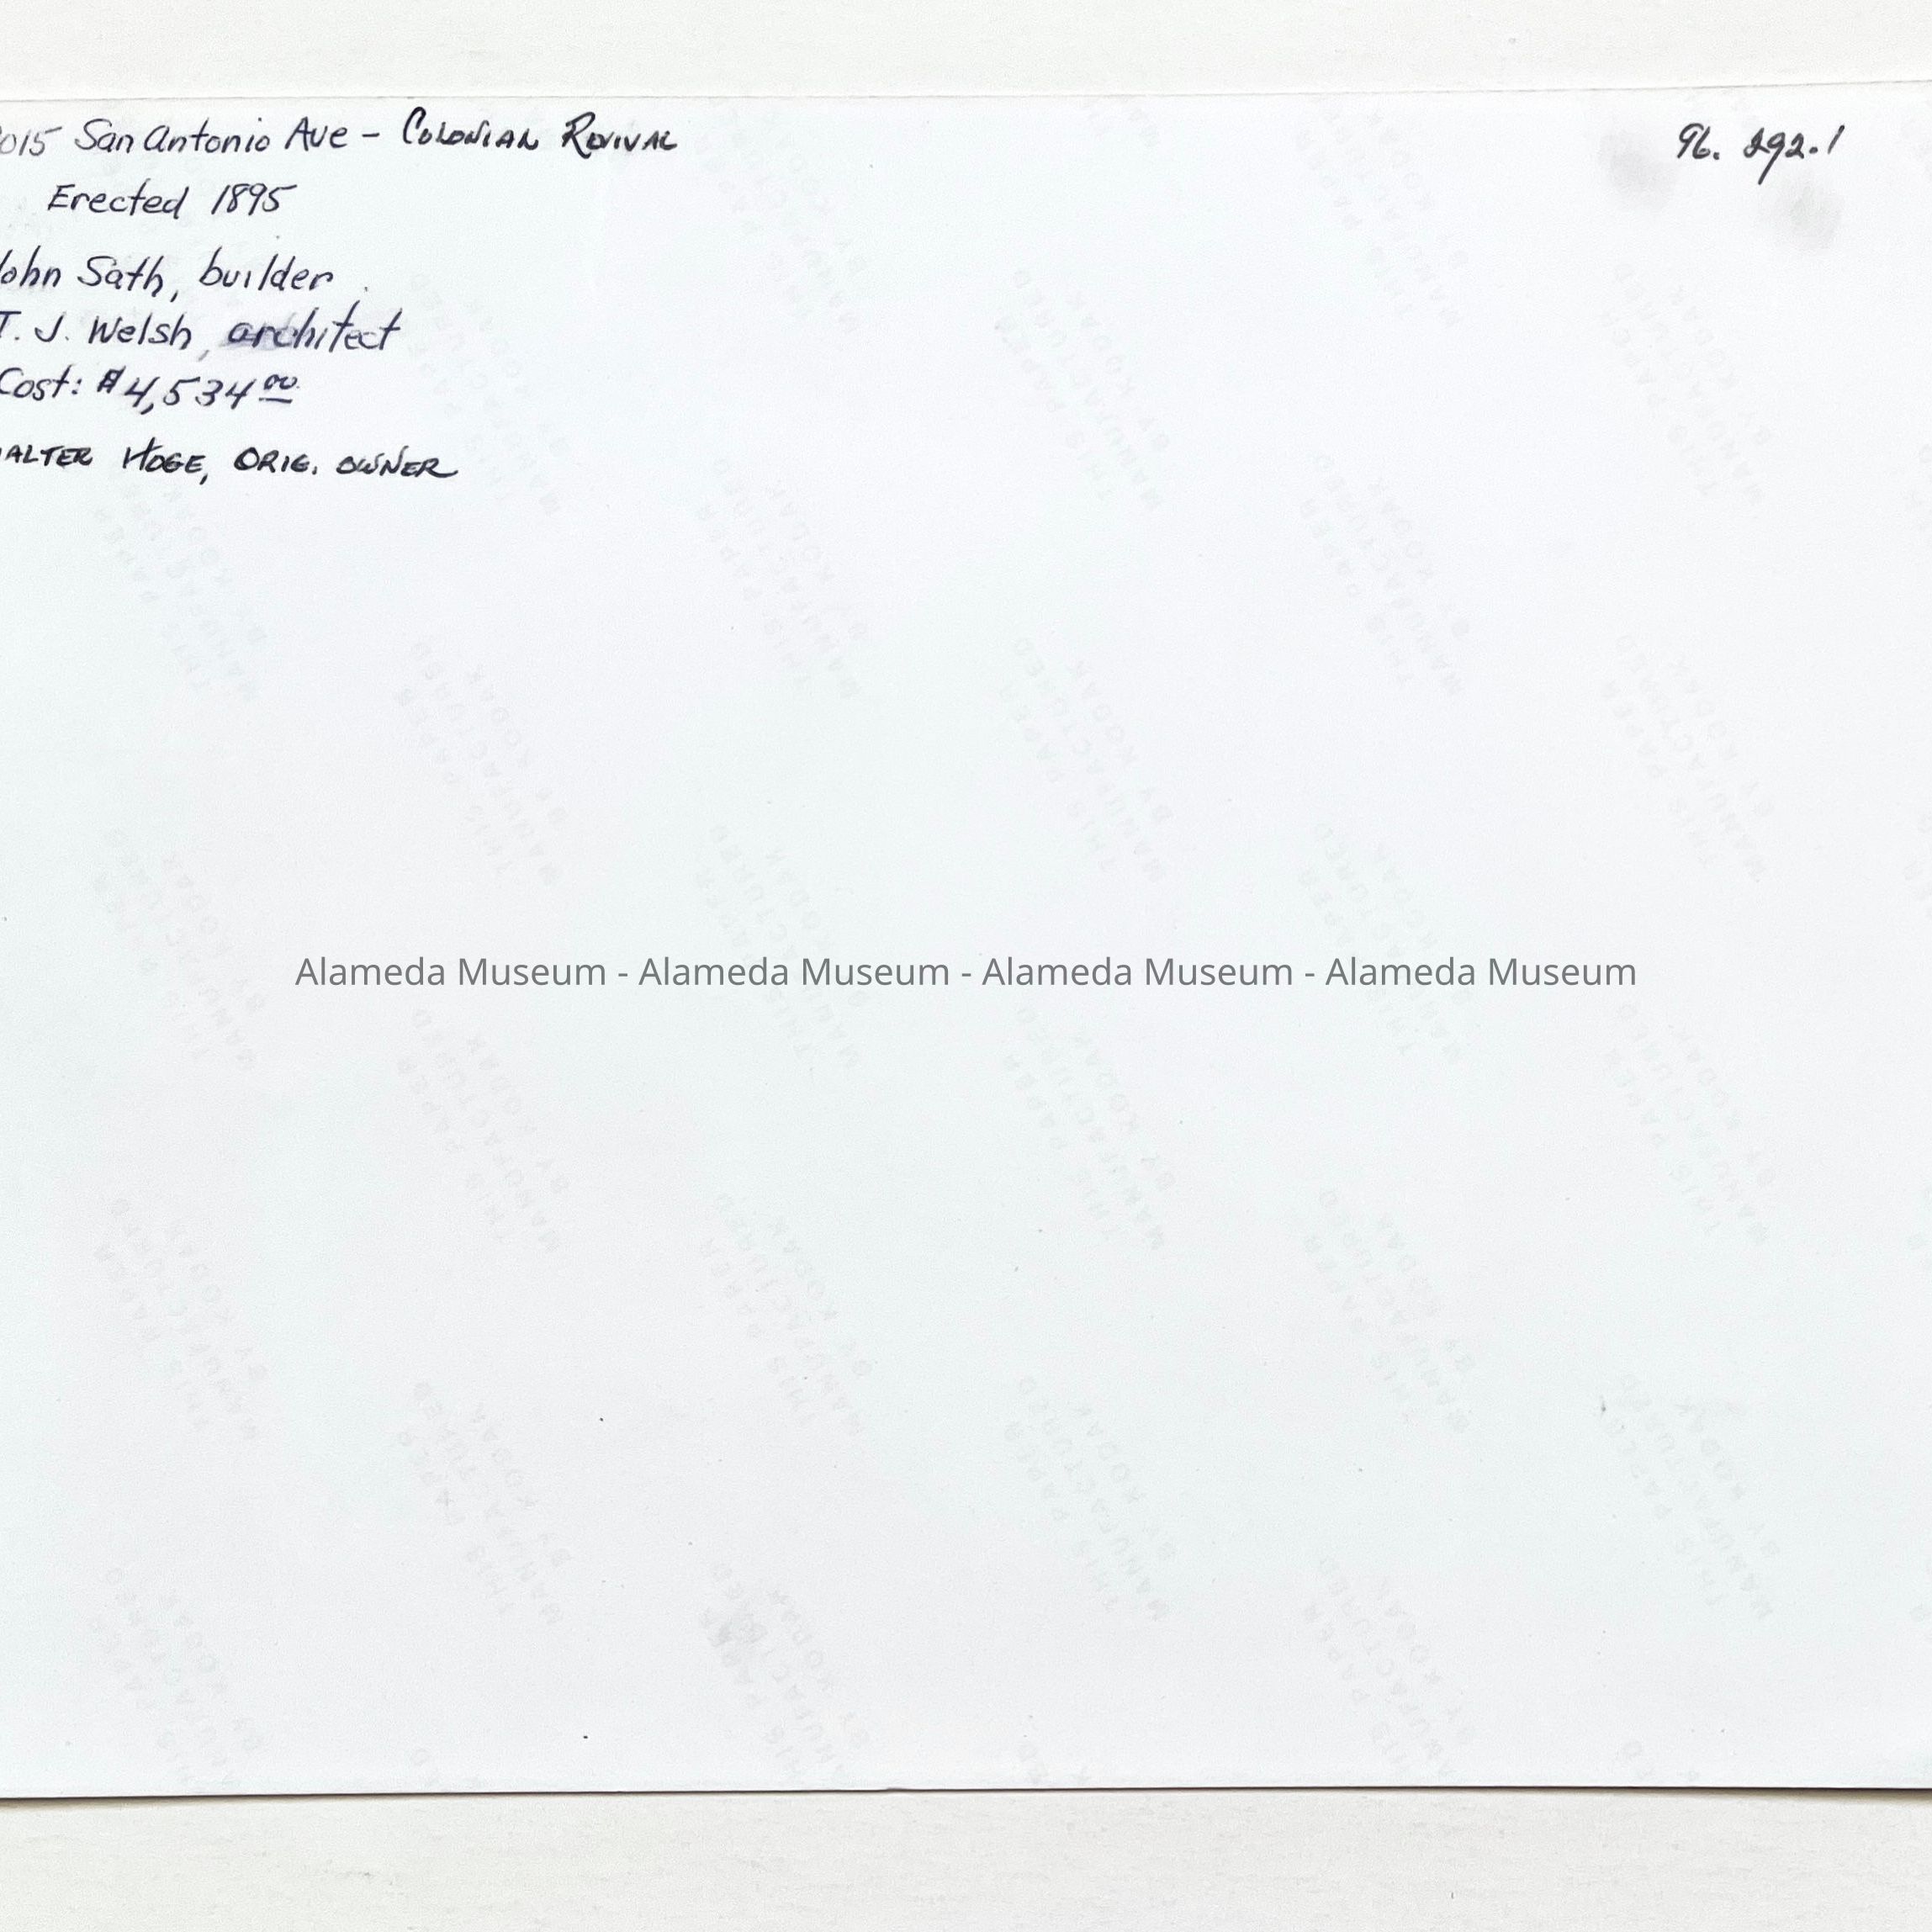 2015 San Antonio Ave - COLONIAN REVIVAL
96. 292.1
Erected 1895
John Sath, builder
T. J. Welsh, architect
Cost: $4,534 00
WALTER HOGE, ORIG. OWNER
Alameda Museum - Alameda Museum - Alameda Museum - Alameda Museum
THIS PAPER
MANUFACTURED
BY KODAK